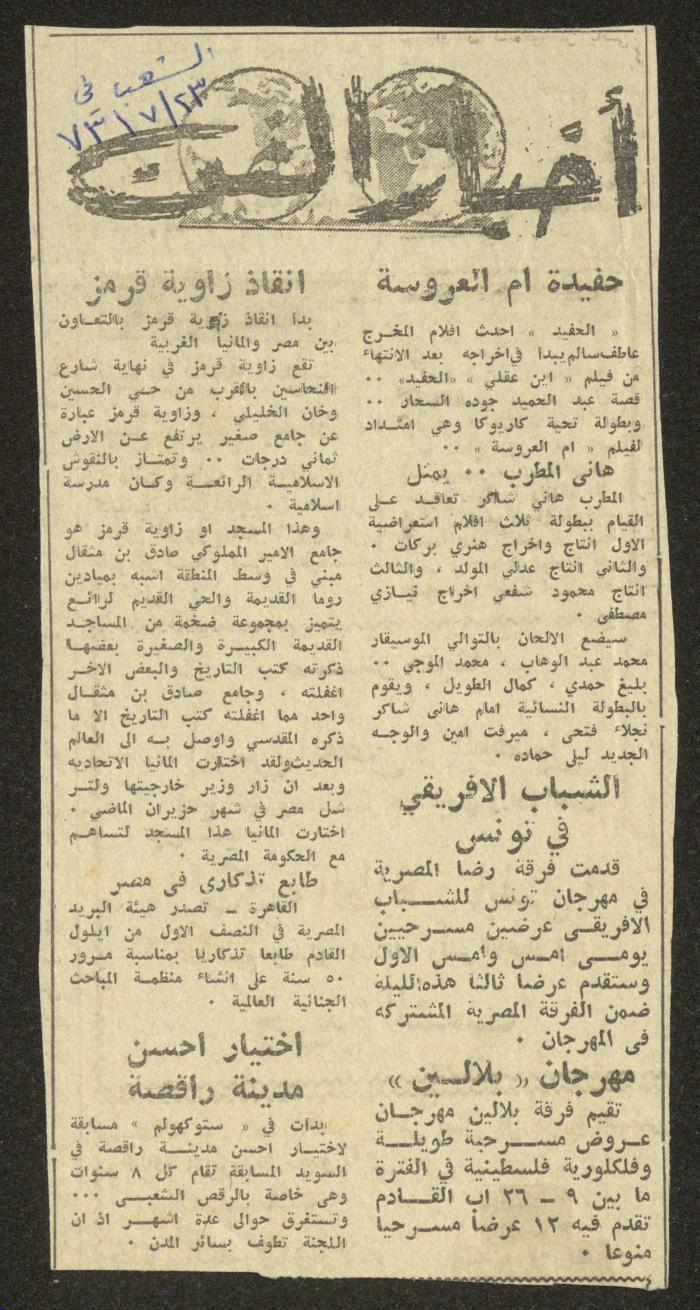 الشعب في
٧٣/٧/٢٣
أخبار الفن
حفيدة ام العروسة
« الحفيد » احدث افلام المخرج
عاطف سالم يبدأ في اخراجه بعد الانتهاء
من فيلم « ابن عقلي » «الحفيد» ٠٠
قصة عبد الحميد جوده السحار ٠٠
وبطولة تحية كاريوكا وهي امتداد
لفيلم « ام العروسة » ٠٠
هانى المطرب ٠٠ يمثل
المطرب هاني شاكر تعاقد على
القيام ببطولة ثلاث افلام استعراضية
الاول انتاج واخراج هنري بركات ٠
والثاني انتاج عدلي المولد ، والثالث
انتاج محمود شفعي اخراج نيازي
مصطفى ٠
سيضع الالحان بالتوالي الموسيقار
محمد عبد الوهاب ، محمد الموجي ٠٠
بليغ حمدي ، كمال الطويل ، ويقوم
بالبطولة النسائية امام هانى شاكر
نجلاء فتحى ، ميرفت امين والوجه
الجديد ليلى حماده ٠
الشباب الافريقي
في تونس
قدمت فرقة رضا المصرية
في مهرجان تونس للشباب
الافريقى عرضين مسرحيين
يومى امس وامس الاول
وستقدم عرضا ثالثا هذه الليلة
ضمن الفرقة المصرية المشتركه
فى المهرجان ٠
مهرجان « بلالين »
تقيم فرقة بلالين مهرجان
عروض مسرحية طويلة
وفلكلورية فلسطينية في الفترة
ما بين ٩ - ٢٦ اب القادم
تقدم فيه ١٢ عرضا مسرحيا
منوعا ٠
انقاذ زاوية قرمز
بدأ انقاذ زاوية قرمز بالتعاون
بين مصر والمانيا الغربية
تقع زاوية قرمز في نهاية شارع
النحاسين بالقرب من حي الحسين
وخان الخليلي ، وزاوية قرمز عبارة
عن جامع صغير يرتفع عن الارض
ثماني درجات ٠٠ وتمتاز بالنقوش
الاسلامية الرائعة وكان مدرسة
اسلامية ٠
وهذا المسجد او زاوية قرمز هو
جامع الامير المملوكي صادق بن مثقال
مبني في وسط المنطقة اشبه بميادين
روما القديمة والحي القديم لرائع
يتميز بمجموعة ضخمة من المساجد
القديمة الكبيرة والصغيرة بعضها
ذكرته كتب التاريخ والبعض الاخر
اغفلته ، وجامع صادق بن مثقال
واحد مما اغفلته كتب التاريخ الا ما
ذكره المقدسي واوصل به الى العالم
الحديث ولقد اختارت المانيا الاتحاديه
وبعد ان زار وزير خارجيتها ولتر
شل مصر في شهر حزيران الماضي ٠
اختارت المانيا هذا المسجد لتساهم
مع الحكومة المصرية ٠
طابع تذكارى فى مصر
القاهرة - تصدر هيئة البريد
المصرية في النصف الاول من ايلول
القادم طابعا تذكاريا بمناسبة مرور
٥٠ سنة على انشاء منظمة المباحث
الجنائية العالمية ٠
اختيار احسن
مدينة راقصة
بدات في « ستوكهولم » مسابقة
لاختيار احسن مدينة راقصة في
السويد المسابقة تقام كل ٨ سنوات
وهى خاصة بالرقص الشعبى ٠٠٠
وتستغرق حوالى عدة اشهر اذ ان
اللجنة تطوف بسائر المدن ٠